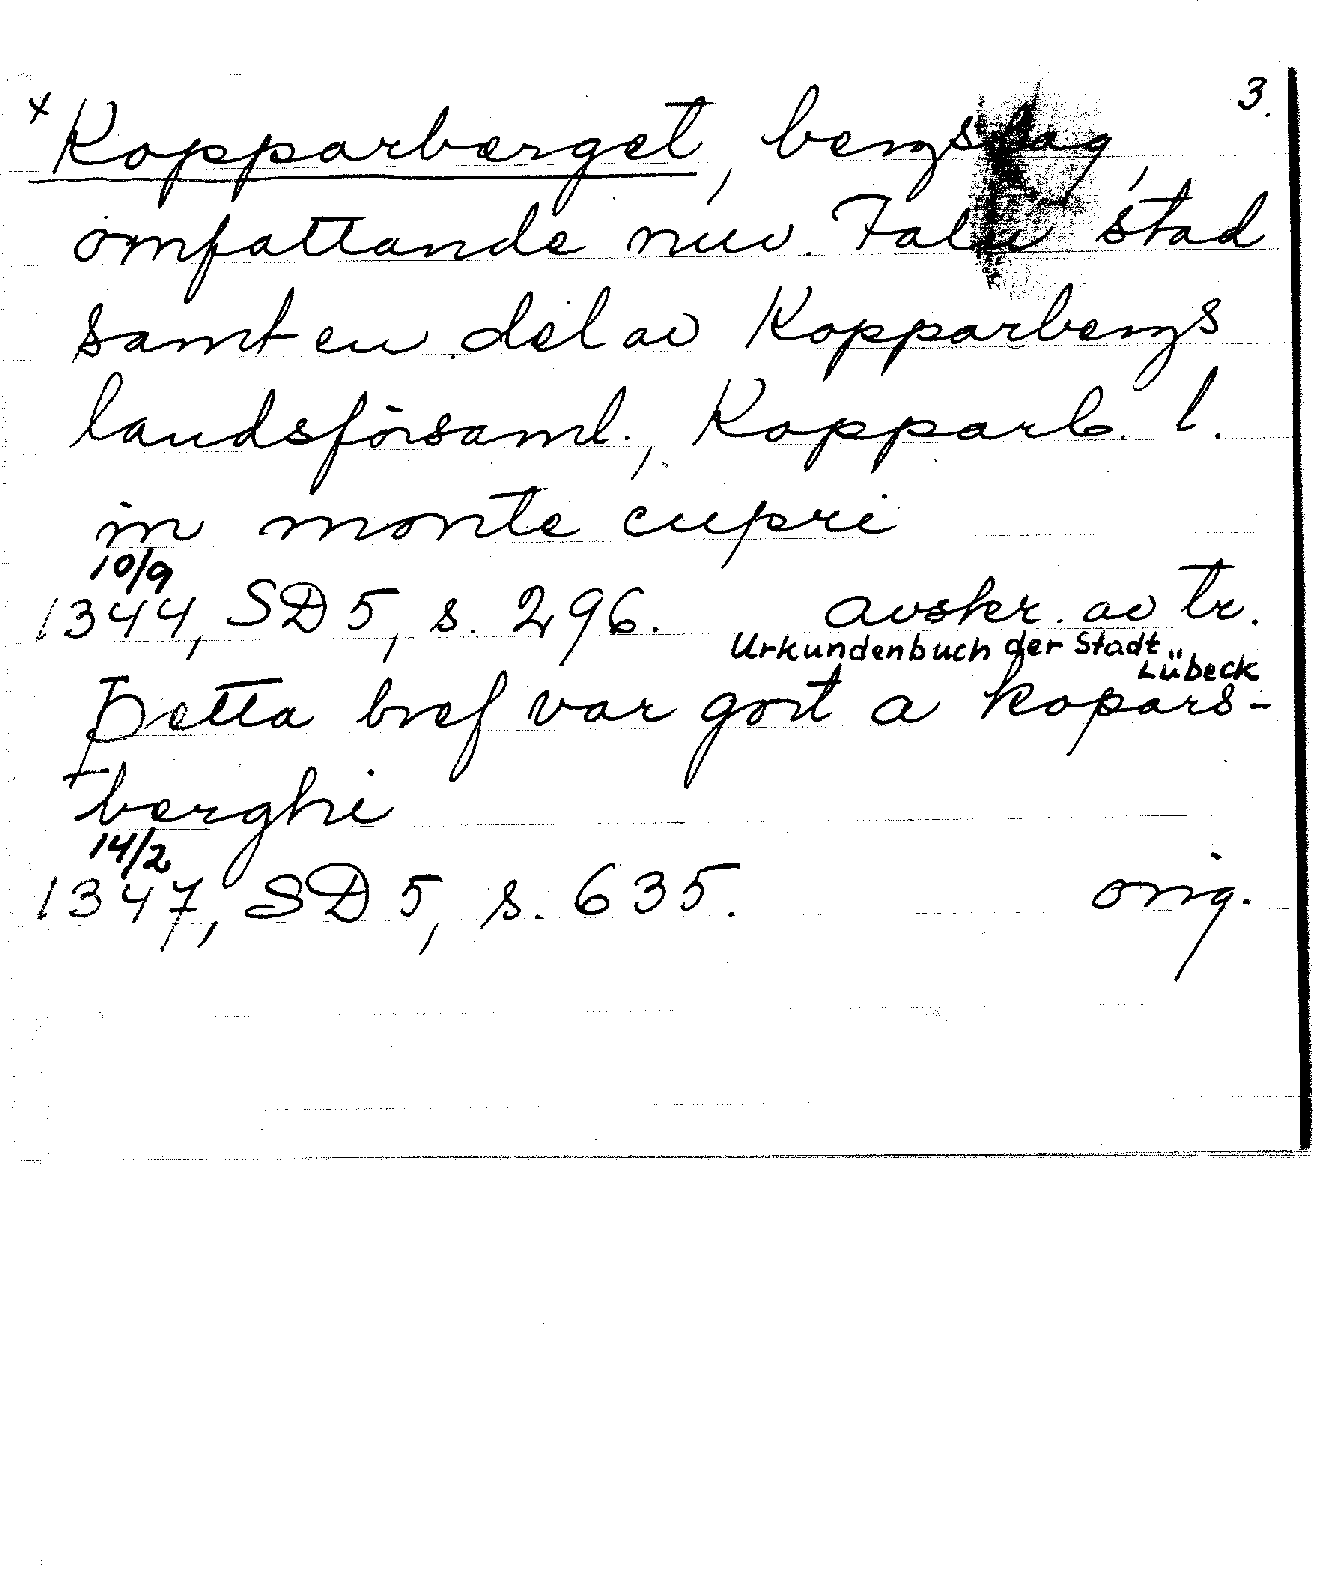 x Kopparberget, bergslag, 3.
omfattande nuv. Falu stad
samt en del av Kopparbergs
landsförsaml., Kopparb. l.
in monte cupri
10/9
1344, SD 5, s. 296. avskr. av tr.
Urkundenbuch der Stadt
Lübeck
Þetta bref var gort a kopars-
berghi
14/2
1347, SD 5, s. 635. orig.